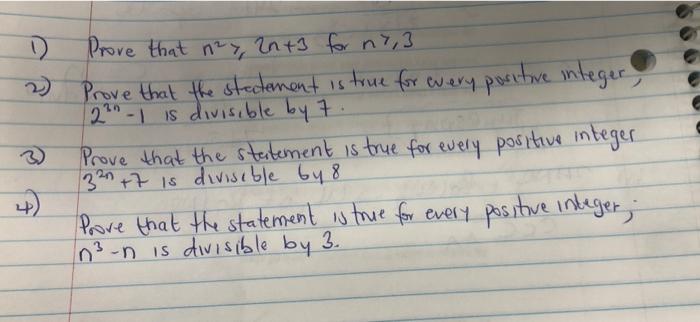 1) Prove that n² ≥ 2n+3 for n ≥ 3
2) Prove that the statement is true for every positive integer,
2³ⁿ - 1 is divisible by 7.
3) Prove that the statement is true for every positive integer
3²ⁿ + 7 is divisible by 8
4) Prove that the statement is true for every positive integer;
n³ - n is divisible by 3.